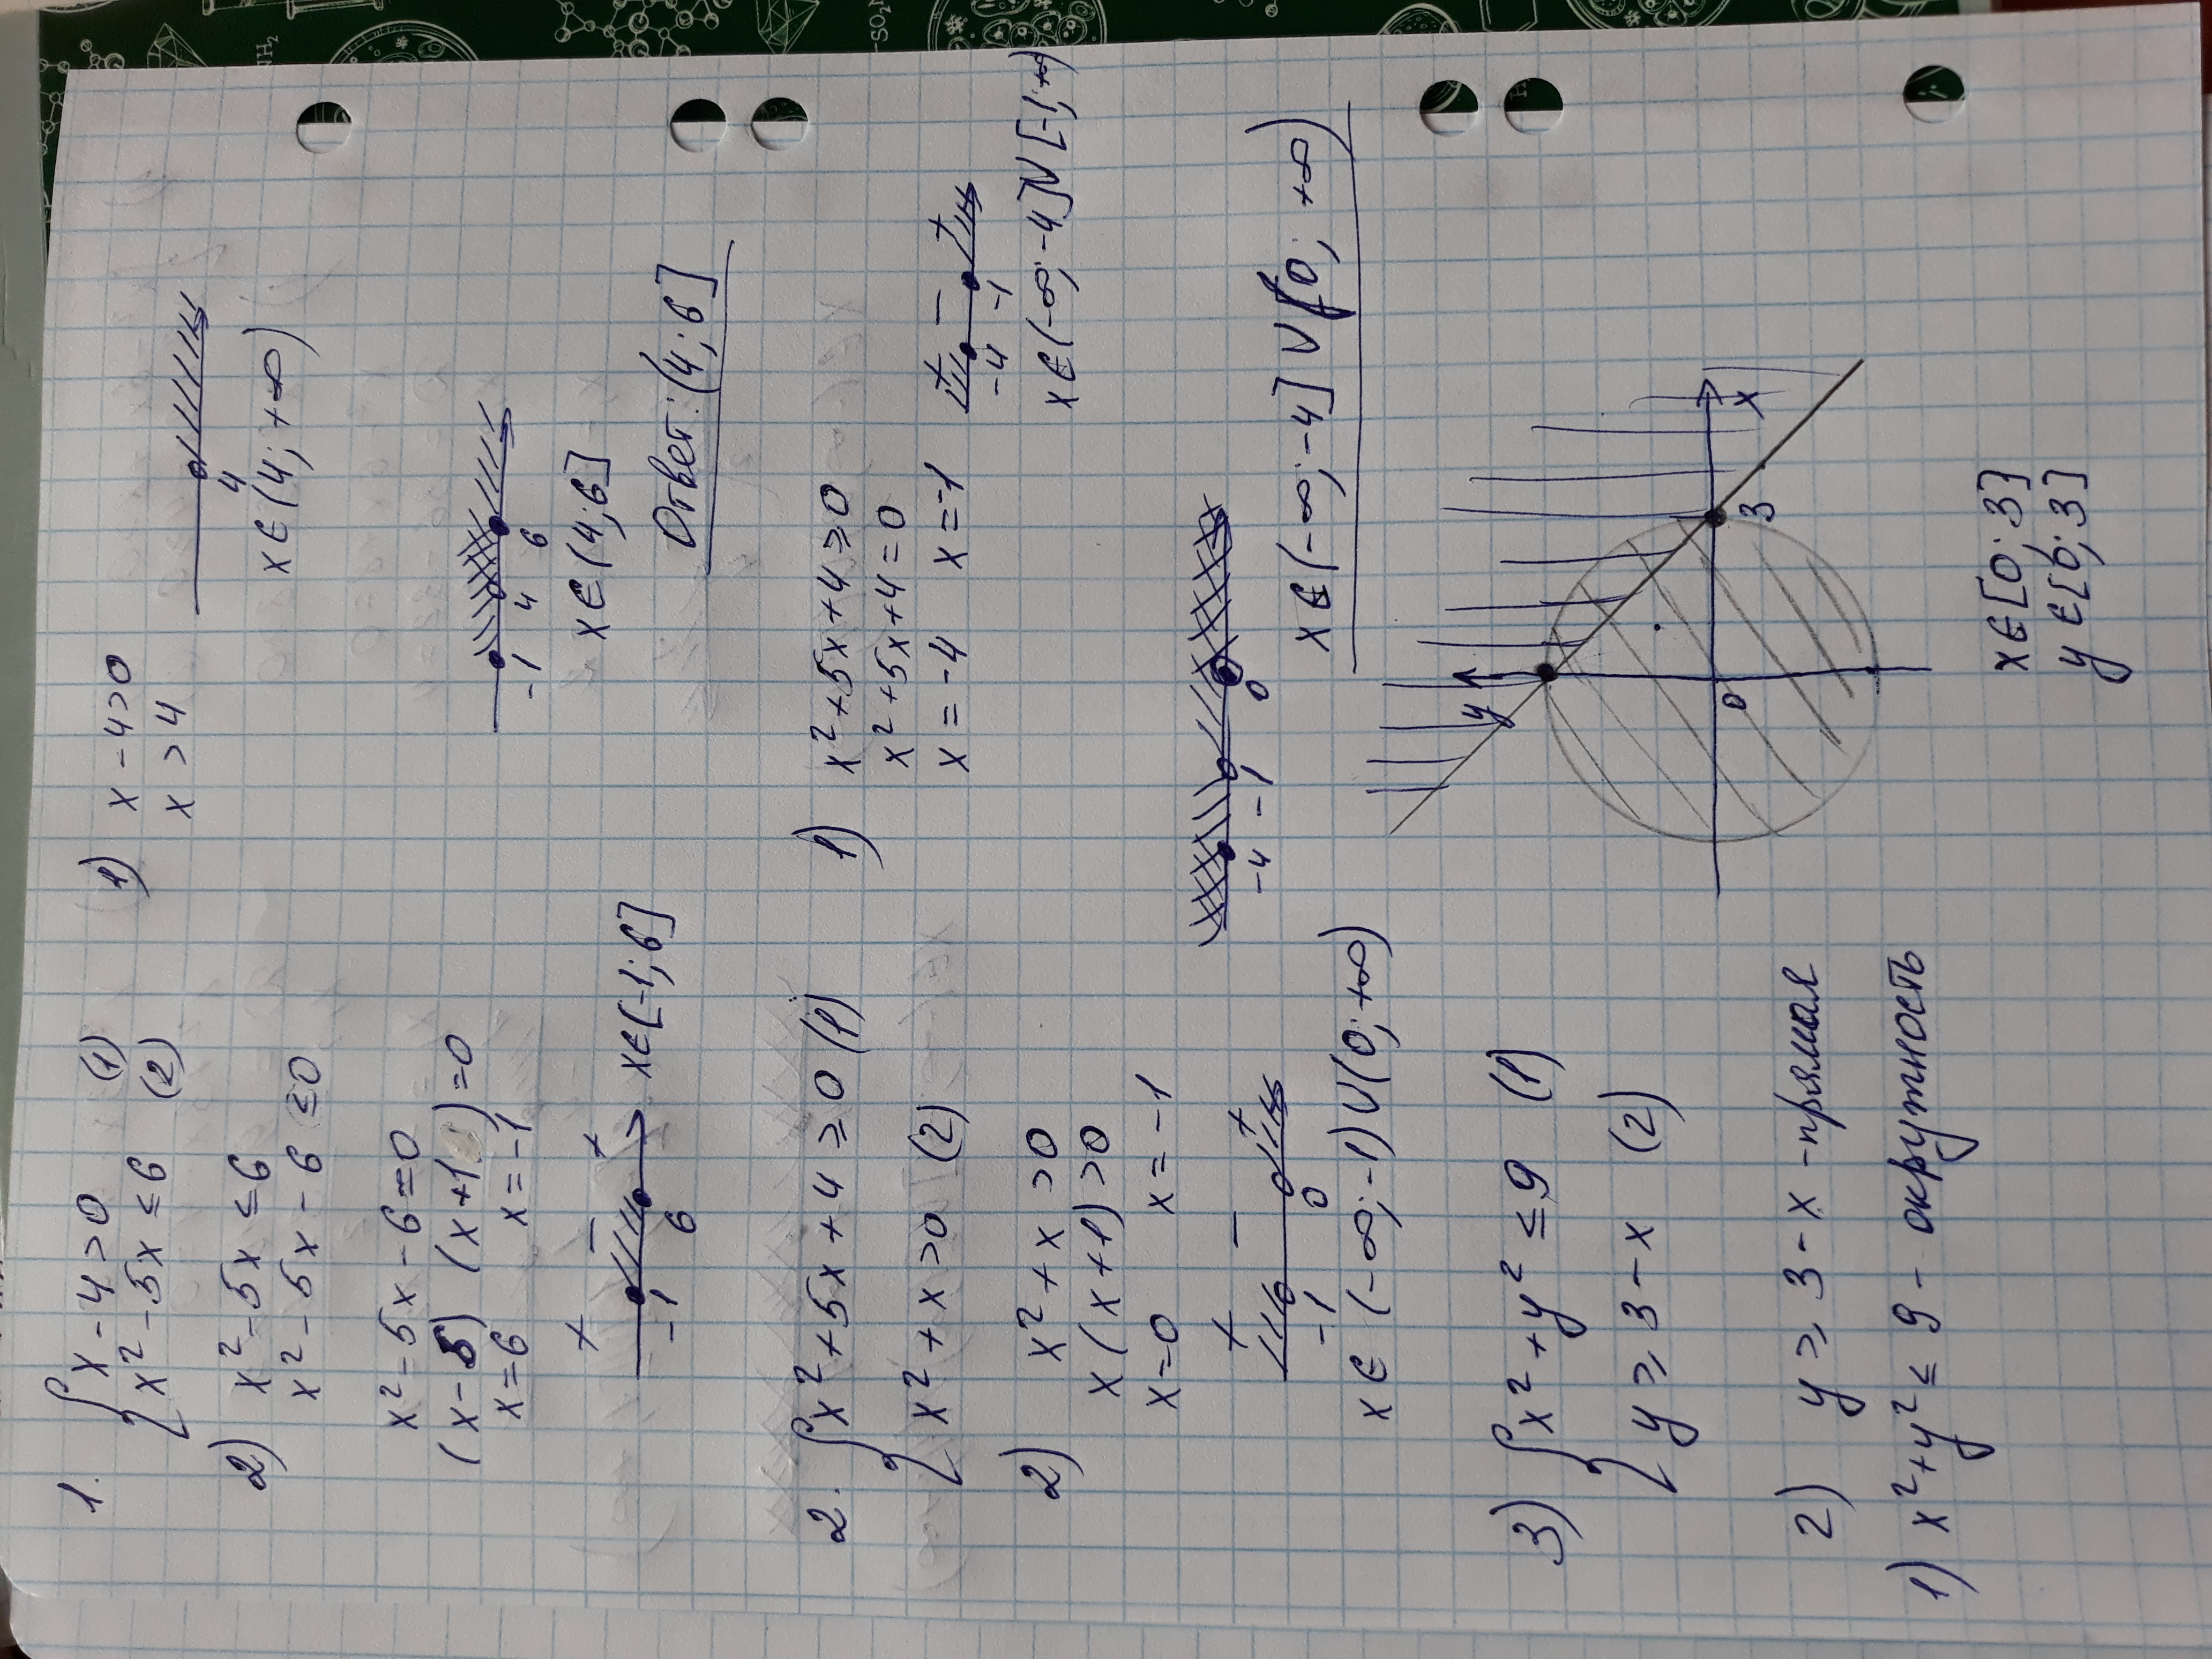 1. { x - 4 > 0 (1)
x² - 5x ≤ 6 (2)
1) x - 4 > 0
x > 4
4
x ∈ (4; +∞)
2) x² - 5x ≤ 6
x² - 5x - 6 ≤ 0
x² - 5x - 6 = 0
(x - 5) (x + 1) = 0
x = 6 x = -1
+ - +
-1 6
x ∈ [-1; 6]
-1 4 6
x ∈ (4; 6]
Ответ: (4; 6]
2. { x² + 5x + 4 ≥ 0 (1)
x² + x > 0 (2)
1) x² + 5x + 4 ≥ 0
x² + 5x + 4 = 0
x = -4 x = -1
+ - +
-4 -1
x ∈ (-∞; -4] U [-1; +∞)
2) x² + x > 0
x (x + 1) > 0
x = 0 x = -1
+ - +
-1 0
x ∈ (-∞; -1) U (0; +∞)
-4 -1 0
x ∈ (-∞; -4] U [0; +∞)
3) { x² + y² ≤ 9 (1)
y ≥ 3 - x (2)
2) y ≥ 3 - x - прямая
1) x² + y² ≤ 9 - окружность
y
0 3 x
x ∈ [0; 3]
y ∈ [0; 3]